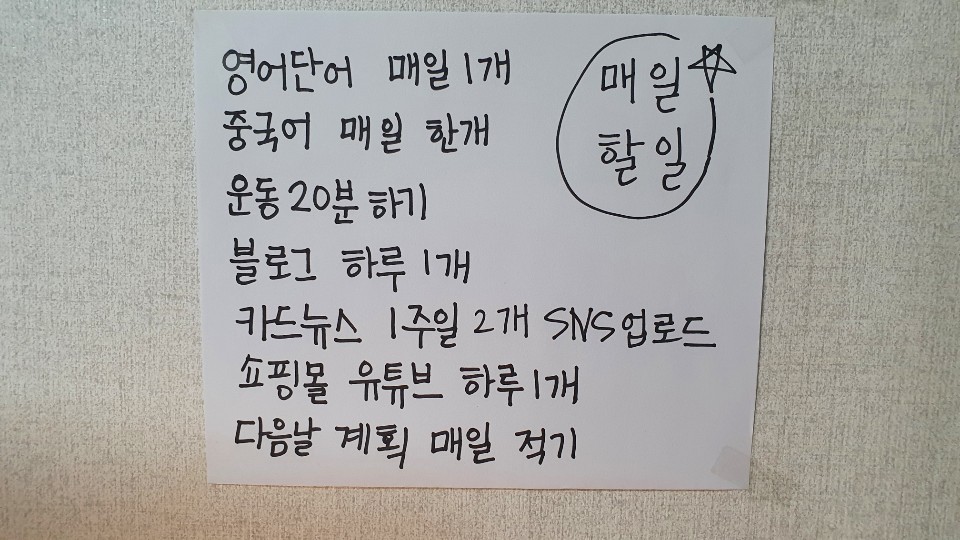 매일
할일
영어단어 매일 1개
중국어 매일 한개
운동 20분 하기
블로그 하루 1개
카드뉴스 1주일 2개 SNS업로드
쇼핑몰 유튜브 하루 1개
다음날 계획 매일 적기